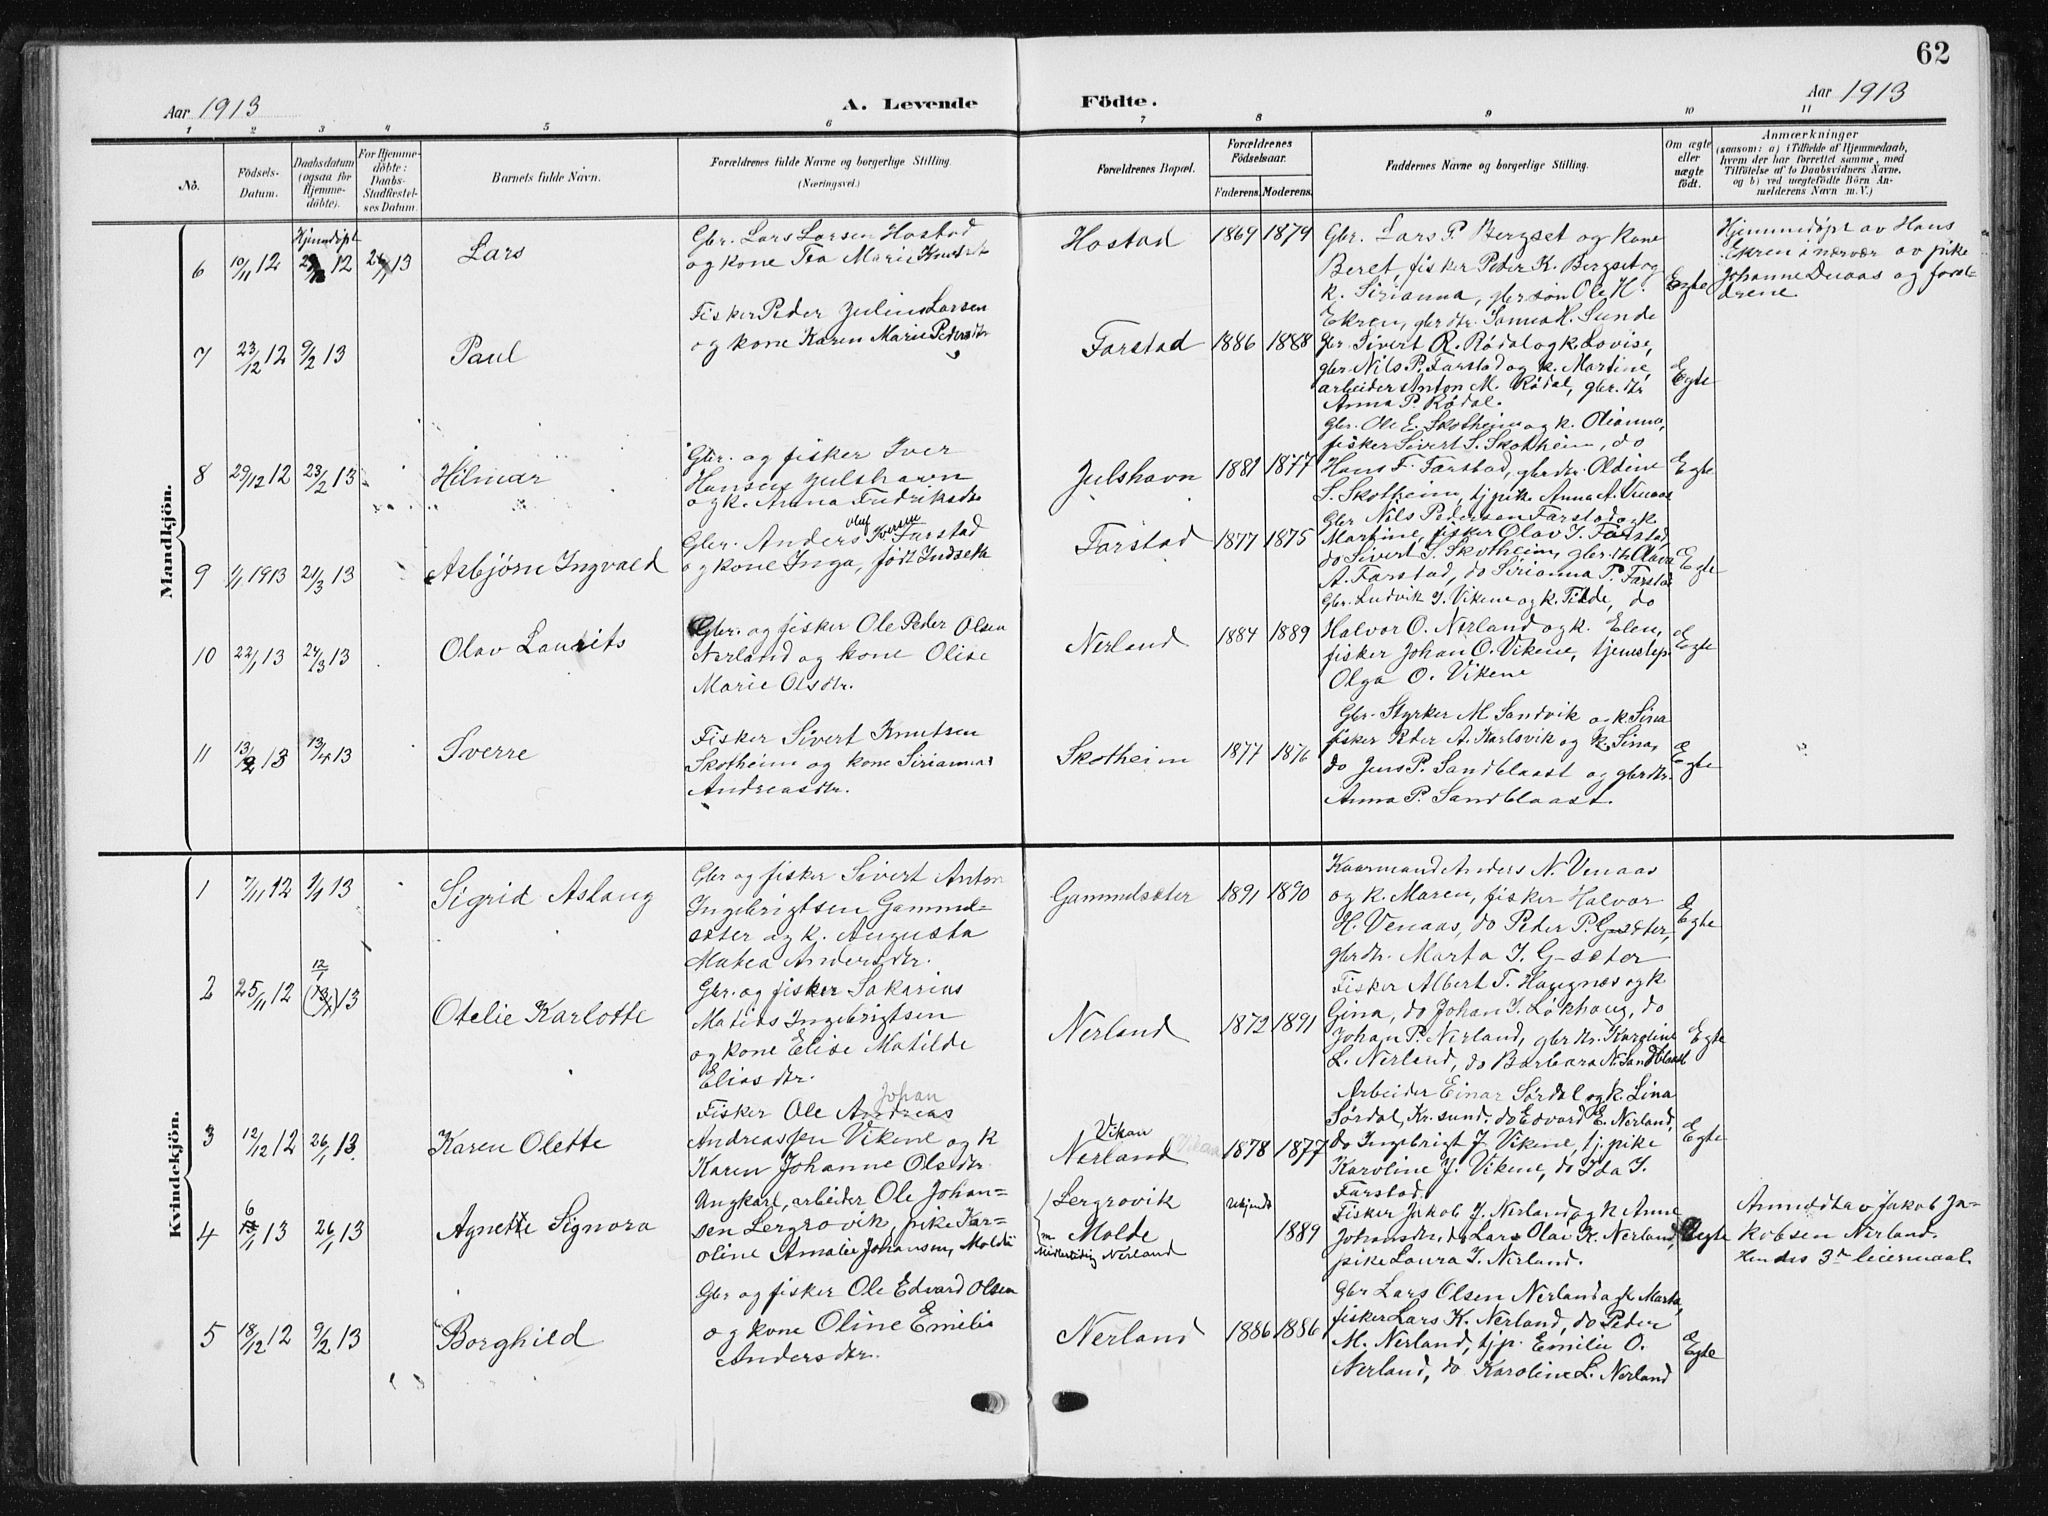 62
Aar 1913
A. Levende
Födte.
Aar 1913
1 2 3 4 5 6 7 8 9 10 11
No.
Födsels-
Datum.
Daabsdatum
(ogsaa for
Hjemme-
döbte).
For Hjemme-
döbte:
Daabs-
Stadfæstel-
ses Datum.
Barnets fulde Navn.
Forældrenes fulde Navne og borgerlige Stilling.
(Næringsvei.)
Forældrenes Bopæl.
Forældrenes
Födselsaar.
Faderens. Moderens.
Faddernes Navne og borgerlige Stilling.
Om ægte
eller
uægte
födt.
Anmærkninger
(saasom: a) i Tilfælde af Hjemmedaab,
hvem der har forrettet samme, med
Tilföielse af to Daabsvidners Navne,
og b) ved uægtefödte Börn An-
melderens Navn m. V.)
Mandkjön.
6
10/11 12
Hjemdøpt
12
13
Lars
Gbr. Lars Larsen Hostad
og kone Tea Marie Knutsdtr
Hostad
1869 1879
Gbr. Lars P. Bergset og kone
Beret, fisker Peter K. Bergset og
k. Sirianna, gbr søn Ole H.
Ekren, gbr dtr. Sanna H. Sunde
Egte
Hjemmedøpt av Hans
Ekren i nærvær av pike
Johanne Duaas og foræl-
drene
7
23/12 12
9/2 13
Paul
Fisker Peder Julius Larsen
og kone Karen Marie Pedersdtr
Farstad
1886 1888
Gbr. Sivert R. Rødal og k. Lovise,
gbr. Nils P. Farstad og k. Martine,
arbeider Anton M. Rødal, gbr. dtr
Anna P. Rødal.
Egte
8
29/12 12
23/2 13
Hilmar
Gbr. og fisker Iver
Hansen Julshavn
og k. Anna Fredriksdtr
Julshavn
1881 1877
Gbr. Ole E. Skotheim og k. Olianna,
fisker Sivert S. Skotheim, do
Hans F. Farstad, gbr dtr. Oldine
S. Skotheim, tj pike Anna A. Venaas
Egte
9
1/1 1913
21/3 13
Asbjørn Ingvald
Gbr. Anders Olaf Iversen Farstad
og kone Inga, født Indseth
Farstad
1877 1875
Gbr Nils Pedersen Farstad og k
Martine, fisker Olav I. Farstad,
do Sivert S. Skotheim, gbr. dtr Olava
A. Farstad, do Sirianna P. Farstad
Egte
10
22/1 13
24/3 13
Olav Laurits
Gbr. og fisker Ole Peder Olsen
Nerland og kone Olise
Marie Olsdtr.
Nerland
1884 1889
Gbr. Ludvik I. Vikene og k. Tilde, do
Halvor O. Nerland og k. Elen,
fisker Johan O. Vikene, tjenstep.
Olga O. Vikene
Egte
11
13/2 13
13/4 13
Sverre
Fisker Sivert Knutsen
Skotheim og kone Sirianna
Andreasdtr.
Skotheim
1877 1876
Gbr. Styrker M Sandvik og k. Sina
fisker Peder A. Karlsvik og k. Sina,
do Jens P. Sandblaast og gbr dtr.
Anna P. Sandblaast.
Egte
Kvindekjön.
1
7/11 12
1/1 13
Sigrid Aslaug
Gbr og fisker Sivert Anton
Ingebrigtsen Gammel-
sæter og k. Augusta
Matea Andersdtr.
Gammelsæter
1891 1890
Kaarmand Anders N. Venaas
og k. Maren, fisker Halvor
H. Venaas, do Peder P. G-sæter,
gbr dtr. Marta I. G-sæter
Egte
2
25/11 12
12/1
13
Otelie Karlotte
Gbr. og fisker Sakarias
Matias Ingebrigtsen
og kone Elise Matilde
Eliasdtr.
Nerland
1872 1891
Fisker Albert T. Haugnæs og k
Gina, do Johan I. Løkhaug, do
Johan P. Nerland, gbr dtr. Karoline
L. Nerland, do Barbara N. Sandblaast
Egte
3
12/12 12
26/1 13.
Karen Olette
Johan
Fisker Ole Andreas
Andreassen Vikene og k
Karen Johanne Olsdtr.
Vikan
Nerland
1878 1877
Arbeider Einar Sørdal og k. Lina
Sørdal, Kr. sund. do Edvard E. Nerland,
do Ingebrigt J Vikene, tj. pike
Karoline J. Vikene, do Ida I.
Farstad.
Egte
4
6
/1 13
26/1 13
Agnette Signora
Ungkarl, arbeider Ole Johan-
sen Lergrovik, pike Kar-
oline Amalie Johansen, Molde
Lergrovik
Molde
midlertidig Nerland
Ukjendt
1889
Fisker Jakob J. Nerland og k Anne
Johansdtr, do Lars Olai K. Nerland,
pike Laura I. Nerland.
Uegte
Anmeldt av Jakob Ja-
kobsen Nerland.
Hendes 3dr leiermaal
5
18/12 12
9/2 13
Borghild
Gbr og fisker Ole Edvard Olsen
og kone Oline Emilie
Andersdtr.
Nerland
1886 1886
Gbr Lars Olsen Nerland og k Marta,
fisker Lars K. Nerland, do Peder
M. Nerland, tjp. Emilie O.
Nerland, do Karoline L. Nerland
Egte